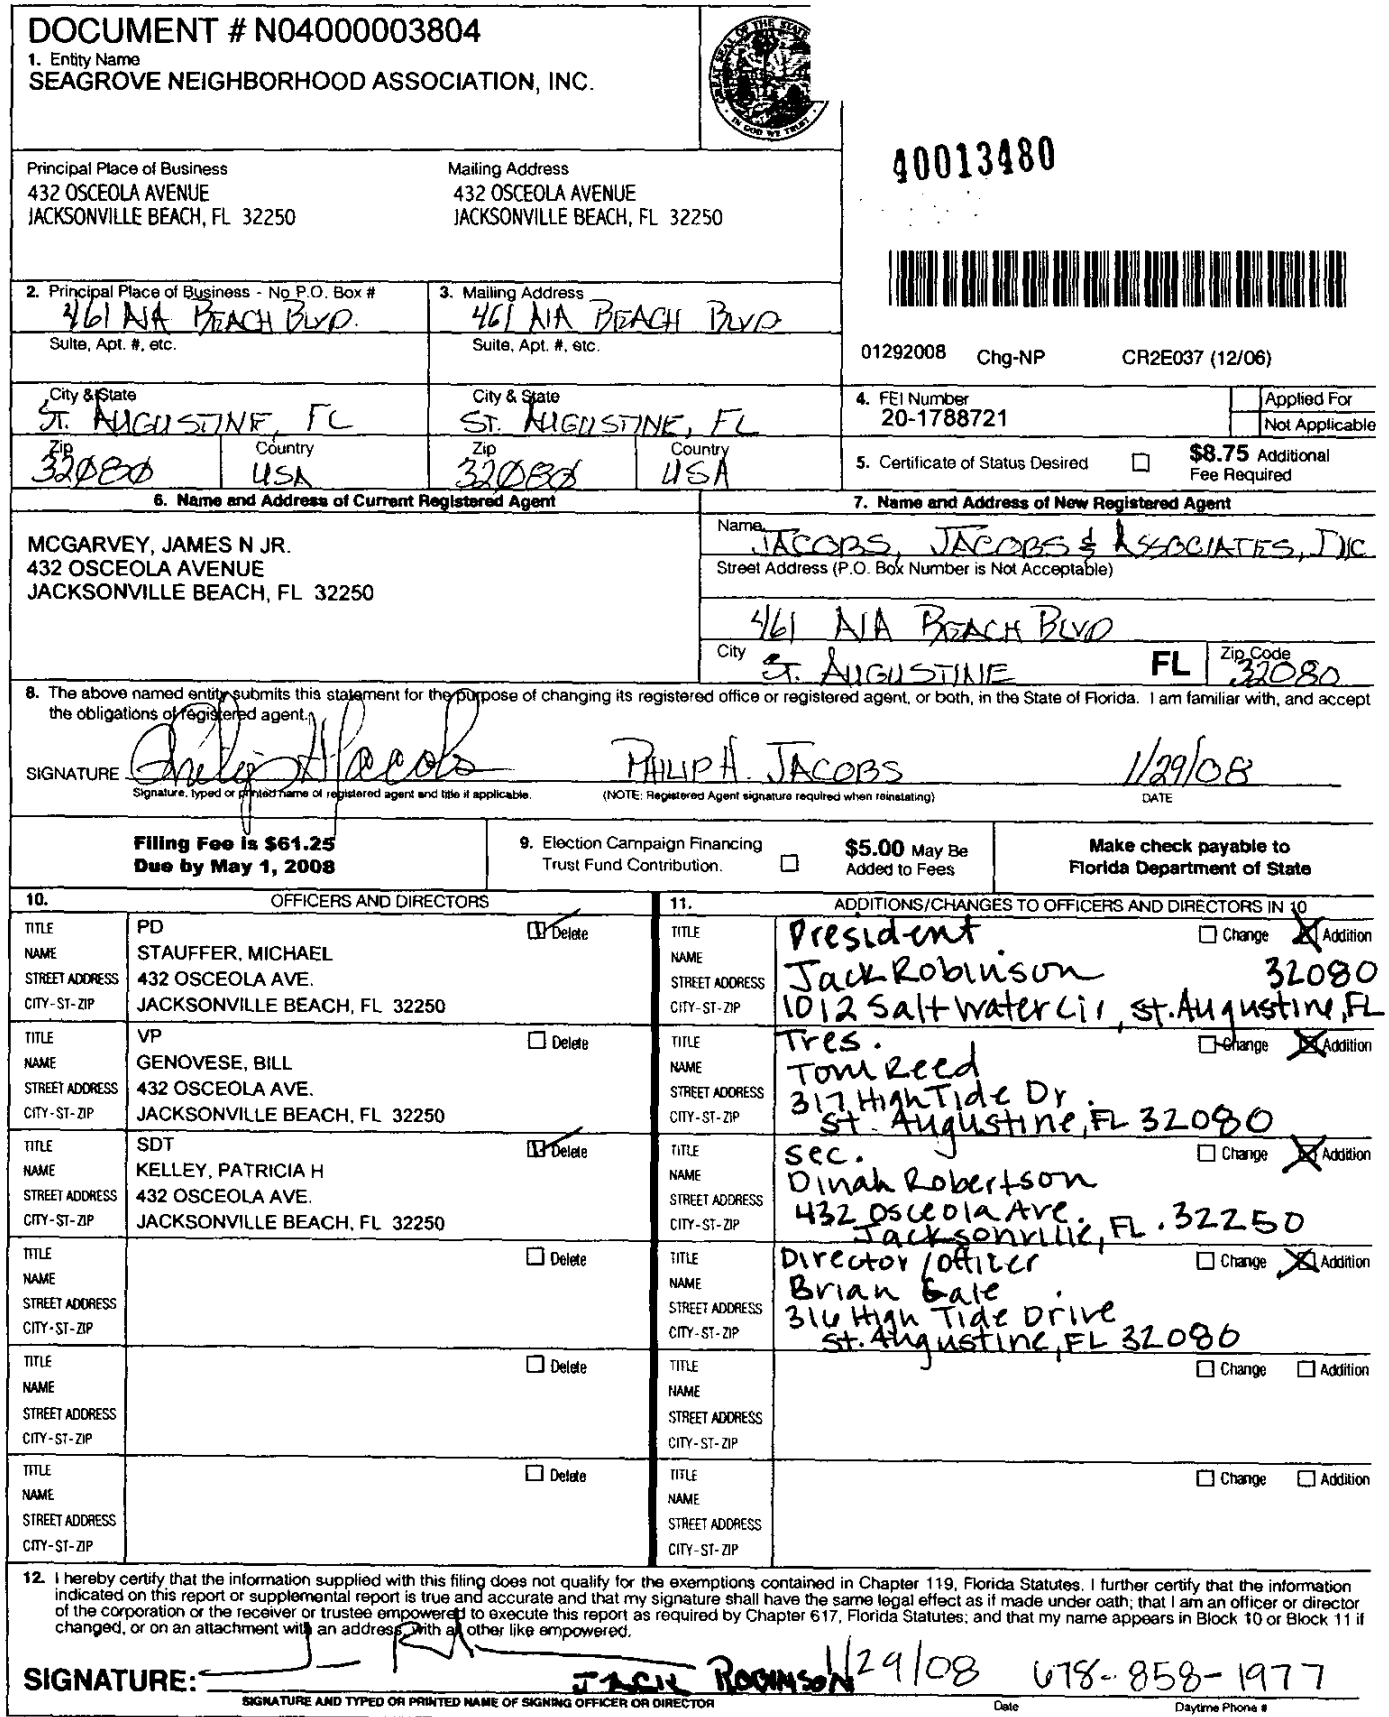 DOCUMENT # N04000003804
1. Entity Name
SEAGROVE NEIGHBORHOOD ASSOCIATION, INC.
GREAT SEAL OF THE STATE
IN GOD WE TRUST
40013480
Principal Place of Business
432 OSCEOLA AVENUE
JACKSONVILLE BEACH, FL 32250
Mailing Address
432 OSCEOLA AVENUE
JACKSONVILLE BEACH, FL 32250
2. Principal Place of Business - No P.O. Box #
461 A1A BEACH BLVD.
3. Mailing Address
461 A1A BEACH BLVD
Suite, Apt. #, etc.
Suite, Apt. #, etc.
01292008 Chg-NP CR2E037 (12/06)
City & State
ST. AUGUSTINE, FL
City & State
ST. AUGUSTINE, FL
Zip
32080
Country
USA
Zip
32080
Country
USA
4. FEI Number
20-1788721
Applied For
Not Applicable
5. Certificate of Status Desired
$8.75 Additional
Fee Required
6. Name and Address of Current Registered Agent
MCGARVEY, JAMES N JR.
432 OSCEOLA AVENUE
JACKSONVILLE BEACH, FL 32250
7. Name and Address of New Registered Agent
Name
JACOBS, JACOBS & ASSOCIATES, INC
Street Address (P.O. Box Number is Not Acceptable)
461 A1A BEACH BLVD
City
ST. AUGUSTINE
FL
Zip Code
32080
8. The above named entity submits this statement for the purpose of changing its registered office or registered agent, or both, in the State of Florida. I am familiar with, and accept
the obligations of registered agent.
SIGNATURE Philip H Jacobs PHILIP H. JACOBS 1/29/08
Signature, typed or printed name of registered agent and title if applicable. (NOTE: Registered Agent signature required when reinstating) DATE
Filing Fee is $61.25
Due by May 1, 2008
9. Election Campaign Financing
Trust Fund Contribution.
$5.00 May Be
Added to Fees
Make check payable to
Florida Department of State
10. OFFICERS AND DIRECTORS
TITLE PD Delete
NAME STAUFFER, MICHAEL
STREET ADDRESS 432 OSCEOLA AVE.
CITY-ST-ZIP JACKSONVILLE BEACH, FL 32250
TITLE VP Delete
NAME GENOVESE, BILL
STREET ADDRESS 432 OSCEOLA AVE.
CITY-ST-ZIP JACKSONVILLE BEACH, FL 32250
TITLE SDT Delete
NAME KELLEY, PATRICIA H
STREET ADDRESS 432 OSCEOLA AVE.
CITY-ST-ZIP JACKSONVILLE BEACH, FL 32250
TITLE Delete
NAME
STREET ADDRESS
CITY-ST-ZIP
TITLE Delete
NAME
STREET ADDRESS
CITY-ST-ZIP
TITLE Delete
NAME
STREET ADDRESS
CITY-ST-ZIP
11. ADDITIONS/CHANGES TO OFFICERS AND DIRECTORS IN 10
TITLE President Change Addition
NAME Jack Robinson 32080
STREET ADDRESS
CITY-ST-ZIP 1012 Salt Water Cir, St. Augustine, FL
TITLE Tres. Change Addition
NAME Tom Reed
STREET ADDRESS 317 High Tide Dr.
CITY-ST-ZIP St. Augustine, FL 32080
TITLE Sec. Change Addition
NAME Dinah Robertson
STREET ADDRESS 432 Osceola Ave.
CITY-ST-ZIP Jacksonville, FL. 32250
TITLE Director/officer Change Addition
NAME Brian Gale
STREET ADDRESS 316 High Tide Drive
CITY-ST-ZIP St. Augustine, FL 32080
TITLE Change Addition
NAME
STREET ADDRESS
CITY-ST-ZIP
TITLE Change Addition
NAME
STREET ADDRESS
CITY-ST-ZIP
12. I hereby certify that the information supplied with this filing does not qualify for the exemptions contained in Chapter 119, Florida Statutes. I further certify that the information
indicated on this report or supplemental report is true and accurate and that my signature shall have the same legal effect as if made under oath; that I am an officer or director
of the corporation or the receiver or trustee empowered to execute this report as required by Chapter 617, Florida Statutes; and that my name appears in Block 10 or Block 11 if
changed, or on an attachment with an address, with all other like empowered.
SIGNATURE: JACK ROBINSON 1/29/08 678-858-1977
SIGNATURE AND TYPED OR PRINTED NAME OF SIGNING OFFICER OR DIRECTOR Date Daytime Phone #